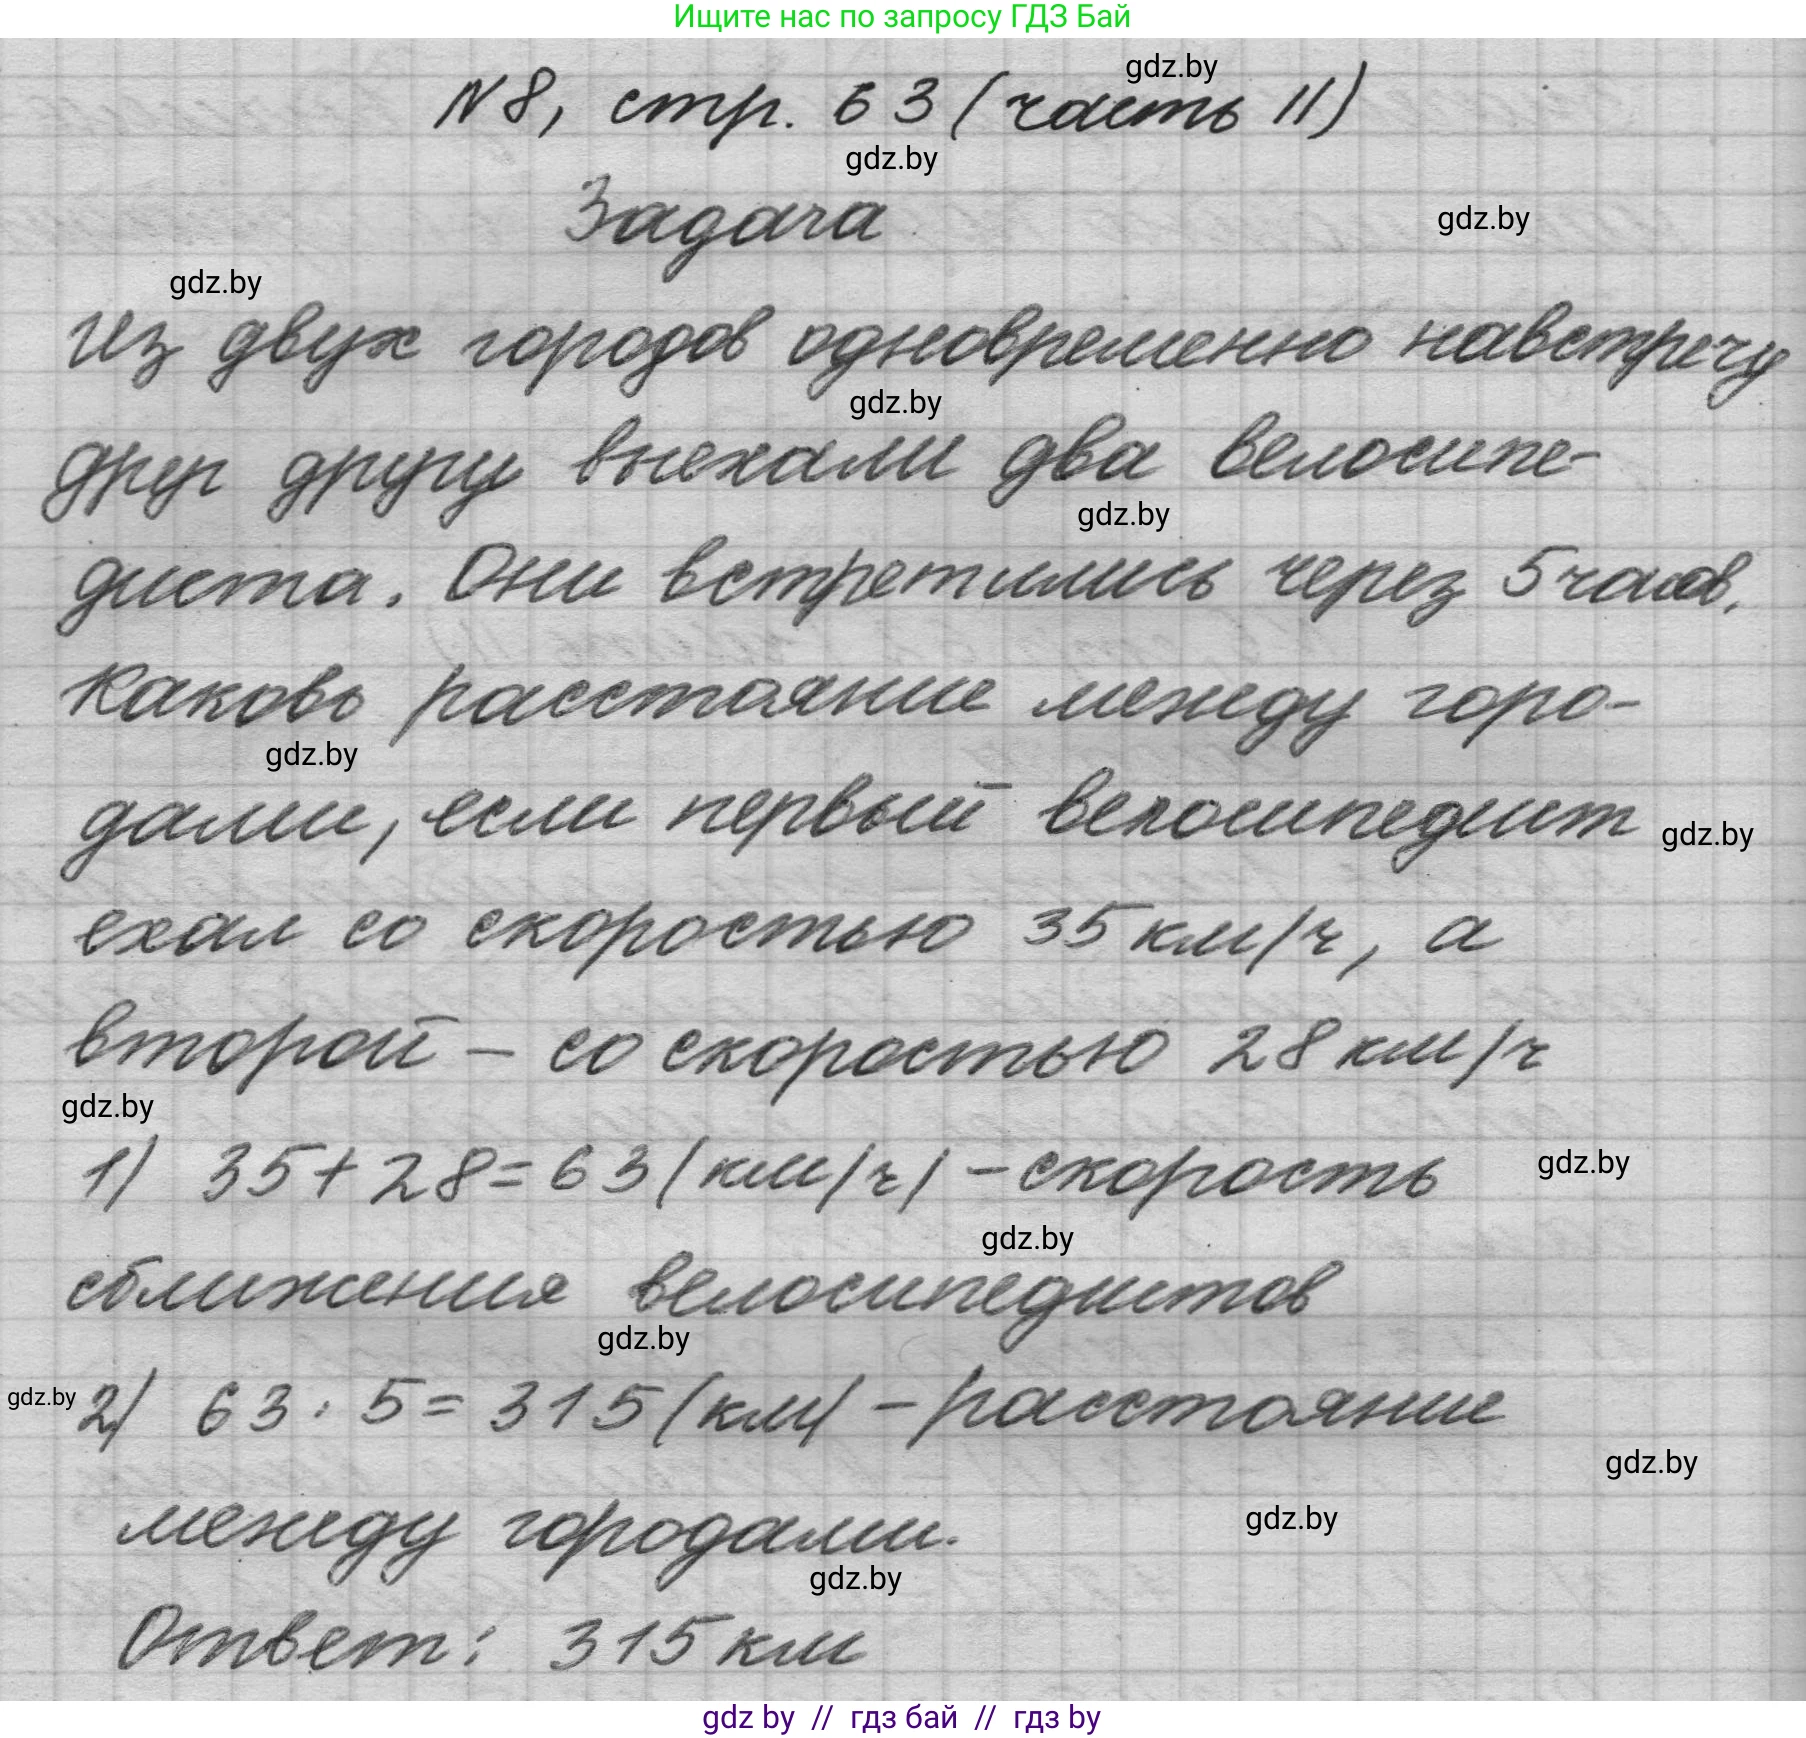 Ищите нас по запросу ГДЗ Бай
gdz.by
N8, стр. 63 (часть II)
gdz.by
Задача
gdz.by
gdz.by
Из двух городов одновременно навстречу
gdz.by
друг другу выехали два велосипе-
gdz.by
диста. Они встретились через 5 часов.
Каковь расстояние между горо-
gdz.by
дами, если первый велосипедист
gdz.by
ехал со скоростью 35 км/ч, а
второй – со скоростью 28 км/ч
gdz.by
1) 35+28=63 (км/ч) – скорость
gdz.by
gdz.by
сближения велосипедистов
gdz.by
gdz.by
2) 63 · 5 = 315 (км) – расстояние
gdz.by
между городами.
gdz.by
gdz.by
Ответ: 315 км
gdz by // гдз бай // гдз by